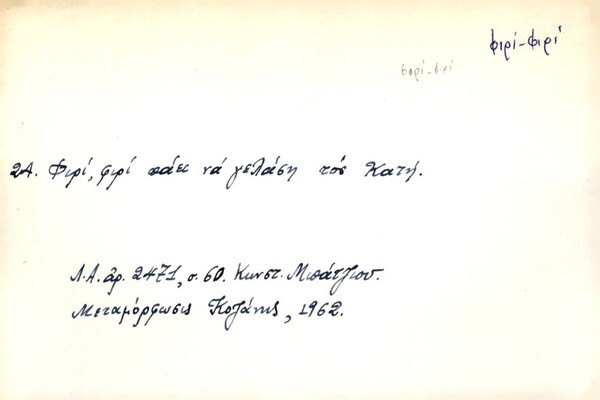 φιρί-φιρί
φιρί-φιρί
2Α. Φιρί, φιρί πάει νά γελάση τόν Κατή.
Λ.Α. ἀρ. 2471, σ. 60. Κωνστ. Μπάτζιου.
Μεταμόρφωσις Κοζάνης, 1962.